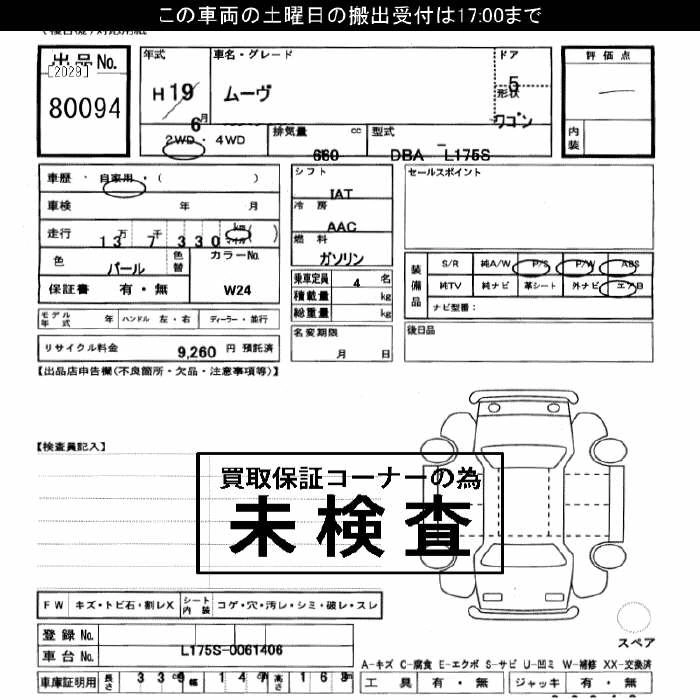 この車両の土曜日の搬出受付は17:00まで
出品No. 年式 車名・グレード ドア 評価点
[2029]
80094
H 19 ムーヴ 5
6月 形状 ワゴン
2WD ・ 4WD 排気量 cc 型式 内装
660 DBA - L175S
車歴 ・ 自家用 ・ ( ) シフト セールスポイント
IAT
車検 年 月 冷房
AAC
走行 万 千 km マイル ( ) 燃料
13 7 330 ガソリン
色 パール 色替 カラーNo. W24
保証書 有・無 乗車定員 4 名
積載量 kg
総重量 kg
装備品 S/R 純A/W P/S P/W ABS
純TV 純ナビ 革シート 外ナビ エアB
ナビ型番:
モデル年式 年 ハンドル 左・右 ディーラー・並行
名変期限 後日品
月 日
リサイクル料金 9,260 円 預託済
【出品店申告欄(不良箇所・欠品・注意事項等)】
【検査員記入】
買取保証コーナーの為
未検査
FW キズ・トビ石・割レX シート内装 コゲ・穴・汚レ・シミ・破レ・スレ
登録 No.
車台 No. L175S-0061406
スペア
A-キズ C-腐食 E-エクボ S-サビ U-凹ミ W-補修 XX-交換済
車庫証明用 長さ 339 幅 147 高さ 163 工具 有・無 ジャッキ 有・無